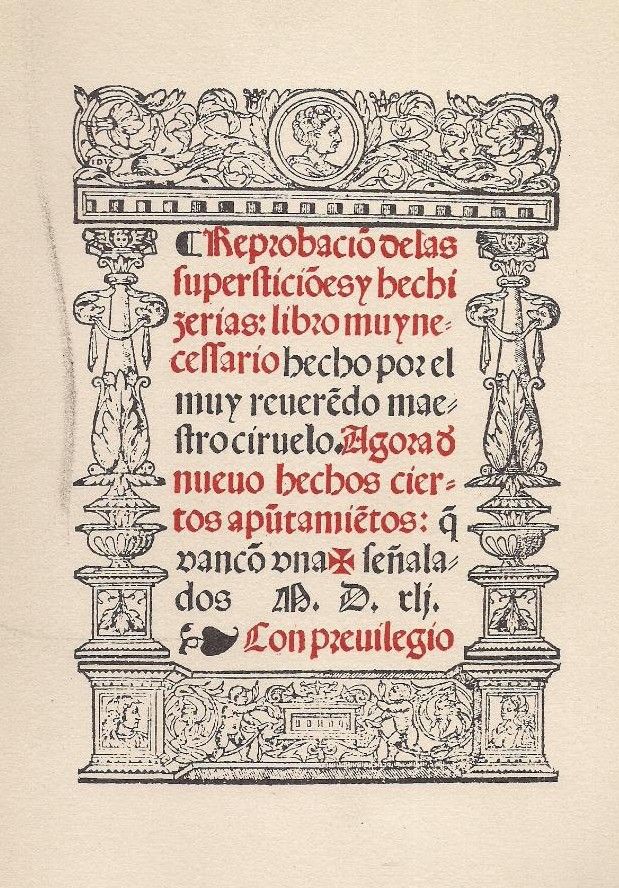 1517
¶ Reprobaciõ de las
supersticiõesy hechi
zerias: libro muy ne-
cessario hecho por el
muy reuerẽdo mae-
stro ciruelo. Agora d̓
nueuo hechos cier-
tos apũtamiẽtos: q̃
van cõ vna ✠ señala-
dos M. D. xlj.
❧ Con preuilegio